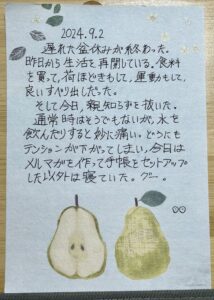 2024.9.2
遅れた盆休みが終わった。
昨日から生活を再開している。食料
を買って、荷ほどきもして、運動もして、
良いすべり出しだった。
そして今日、親知らずを抜いた。
通常時はそうでもないが、水を
飲んだりすると妙に痛い。どうにも
テンションが下がってしまい、今日は
メルマガを作って手帳をセットアップ
した以外は寝ていた。グー。